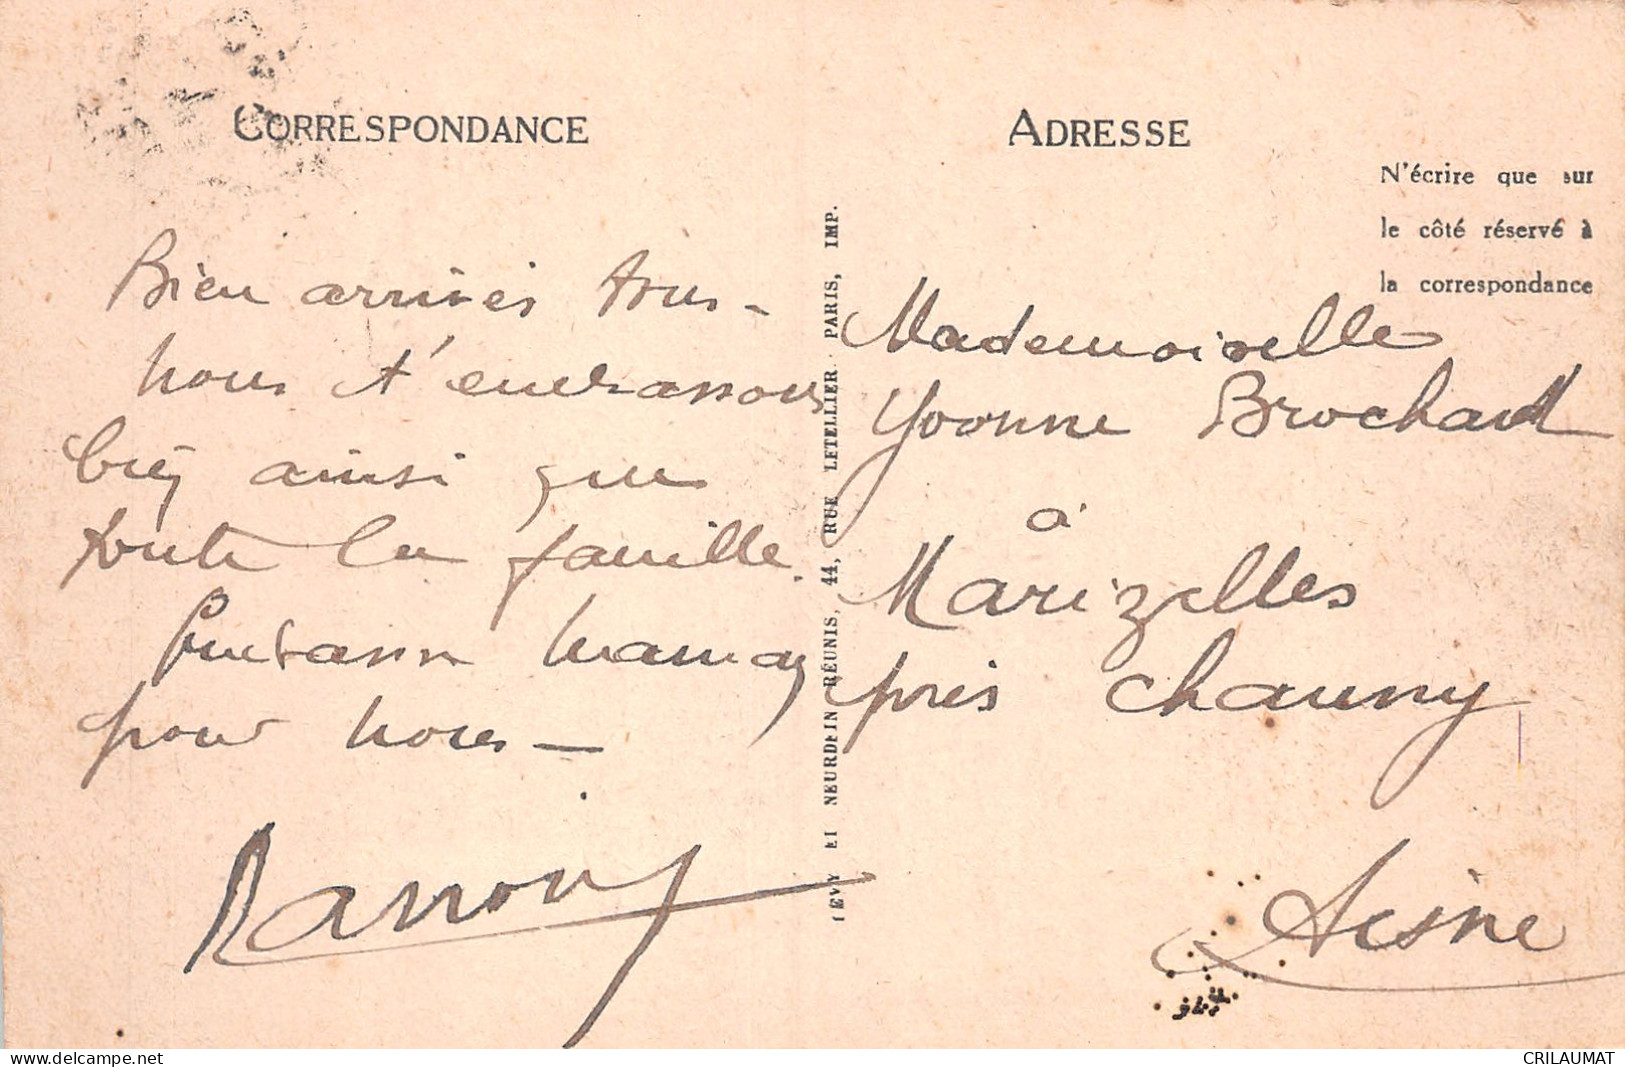 CORRESPONDANCE
Bien arrivés tous –
nous t'embrassons
bien ainsi que
toute la famille.
Embrasse maman
pour nous –
LEVY ET NEURDEIN RÉUNIS, 44, RUE LETELLIER. PARIS, IMP.
ADRESSE
N'écrire que sur
le côté réservé à
la correspondance
Mademoiselle
Yvonne Brochard
à
Marizelles
près Chauny
Aisne
delcampe.net
CRILAUMAT